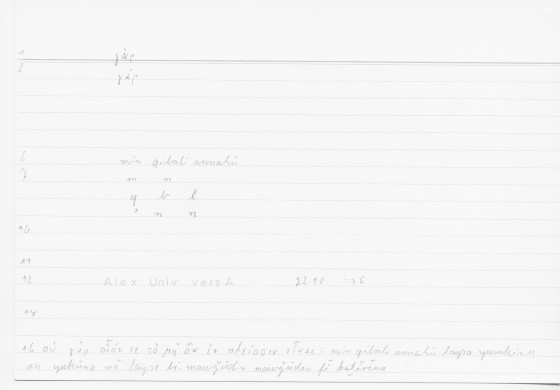 1 γάρ
2 γάρ
6 min qibali annahū
7 m n
q b l
ʾ n n
10
11
12 Alex Univ vers A 22.10 = 36
14
16 οὐ γάρ οἷόν τε τὸ μὴ ὂν ἐν πλείοσιν εἶναι : min qibali annahū laysa yumkinu
an yakūna mā laysa bi-mawǧūdin mawǧūdan fī kaṯīrīna